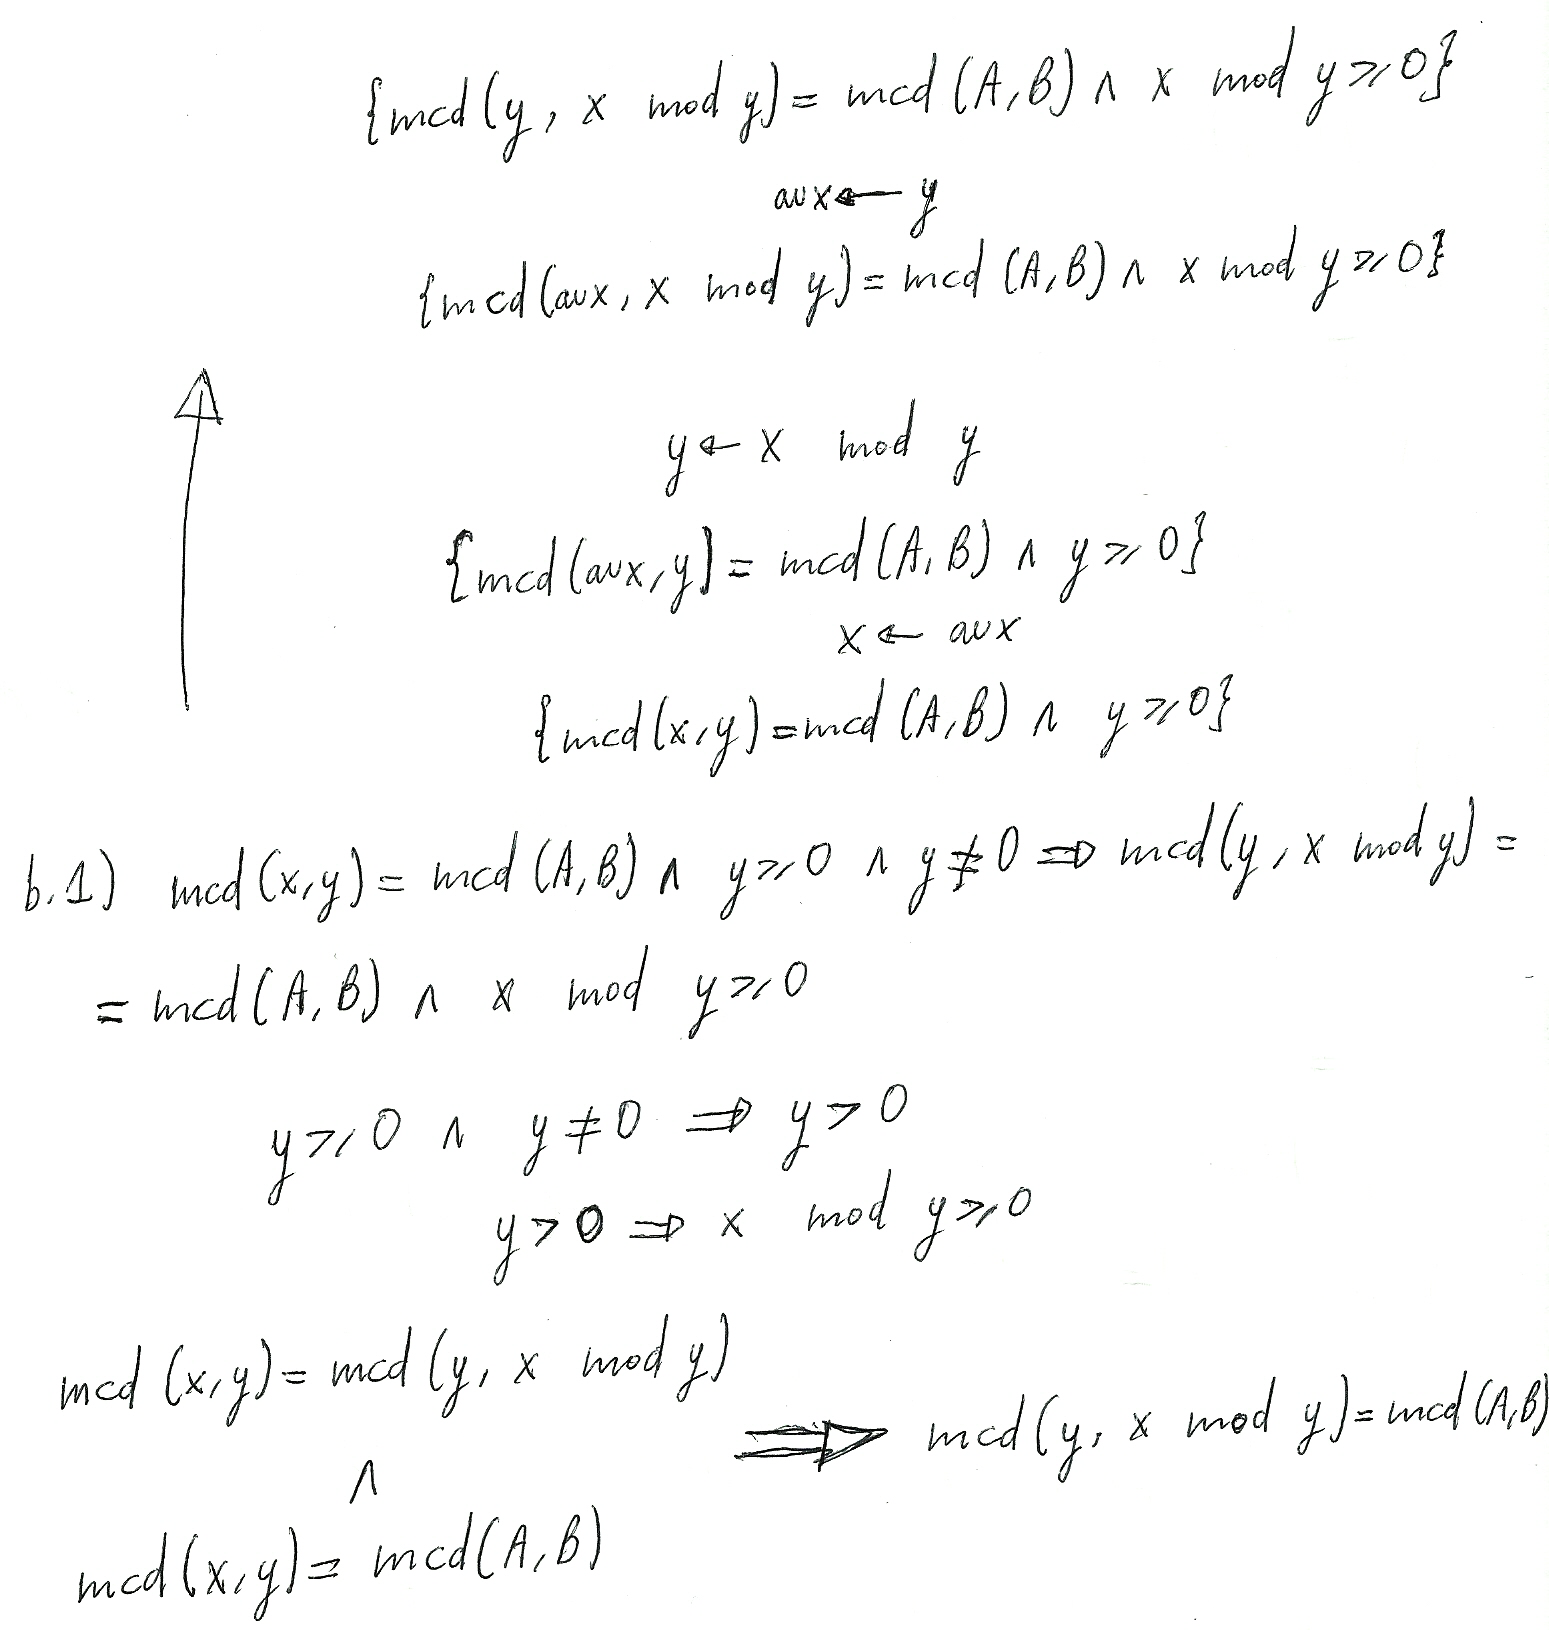 {mcd(y, x mod y) = mcd(A,B) ∧ x mod y ⩾ 0}
aux ← y
{mcd(aux, x mod y) = mcd(A,B) ∧ x mod y ⩾ 0}
y ← x mod y
{mcd(aux, y) = mcd(A,B) ∧ y ⩾ 0}
x ← aux
{mcd(x,y) = mcd(A,B) ∧ y ⩾ 0}
b.1) mcd(x,y) = mcd(A,B) ∧ y ⩾ 0 ∧ y ≠ 0 ⇒ mcd(y, x mod y) =
= mcd(A,B) ∧ x mod y ⩾ 0
y ⩾ 0 ∧ y ≠ 0 ⇒ y > 0
y > 0 ⇒ x mod y ⩾ 0
mcd(x,y) = mcd(y, x mod y)
⇒ mcd(y, x mod y) = mcd(A,B)
∧
mcd(x,y) = mcd(A,B)